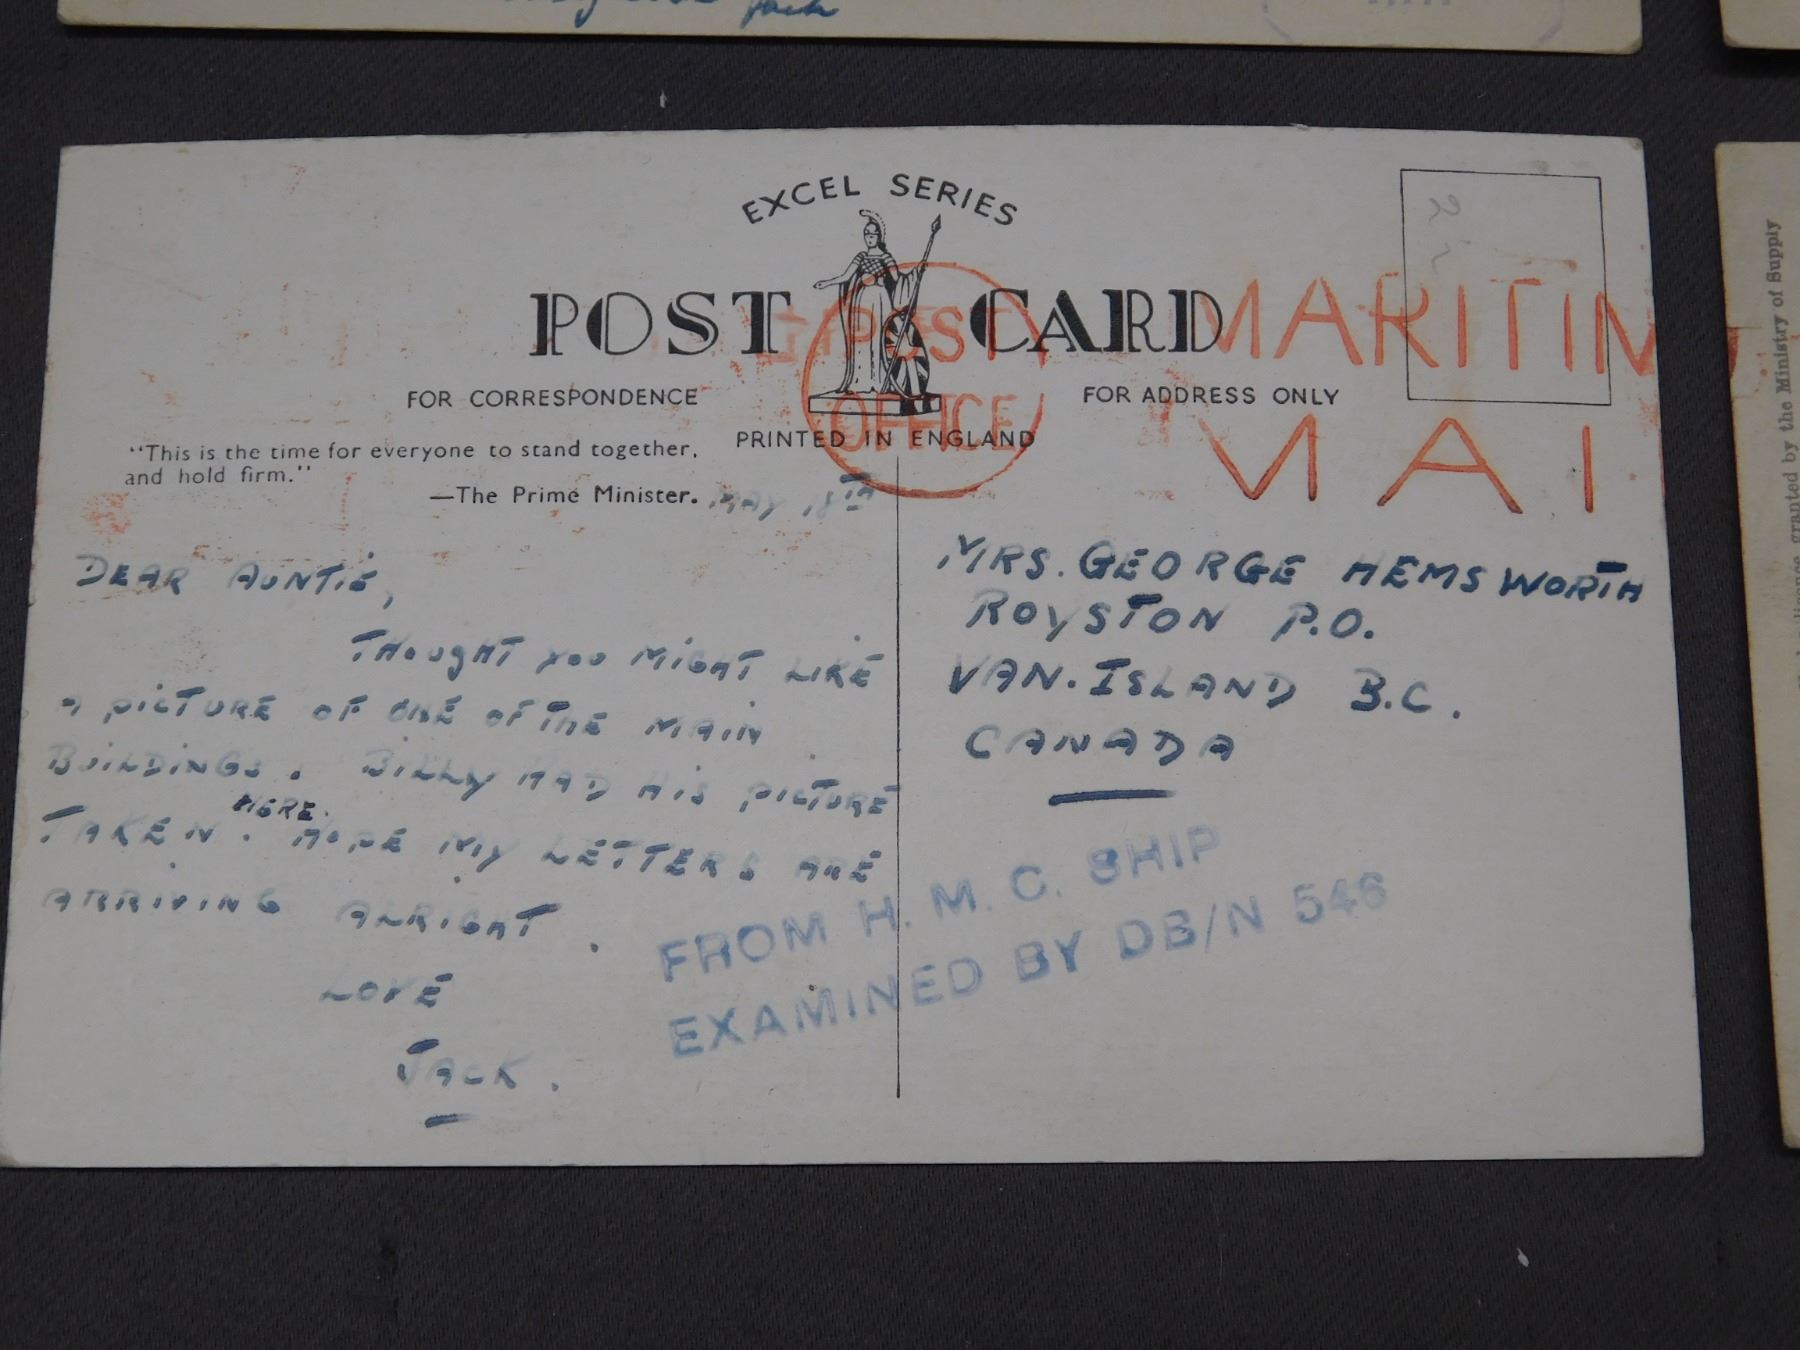 EXCEL SERIES
POST CARD
FOR CORRESPONDENCE
FOR ADDRESS ONLY
PRINTED IN ENGLAND
"This is the time for everyone to stand together,
and hold firm."
—The Prime Minister.
POST
OFFICE
MARITIM
MAI
MAY 18TH
DEAR AUNTIE,
THOUGHT YOU MIGHT LIKE
A PICTURE OF ONE OF THE MAIN
BUILDINGS. BILLY HAD HIS PICTURE
HERE.
TAKEN. HOPE MY LETTERS ARE
ARRIVING ALRIGHT.
LOVE
JACK.
MRS. GEORGE HEMSWORTH
ROYSTON P.O.
VAN. ISLAND B.C.
CANADA
FROM H. M. C. SHIP
EXAMINED BY DB/N 546
granted by the Ministry of Supply